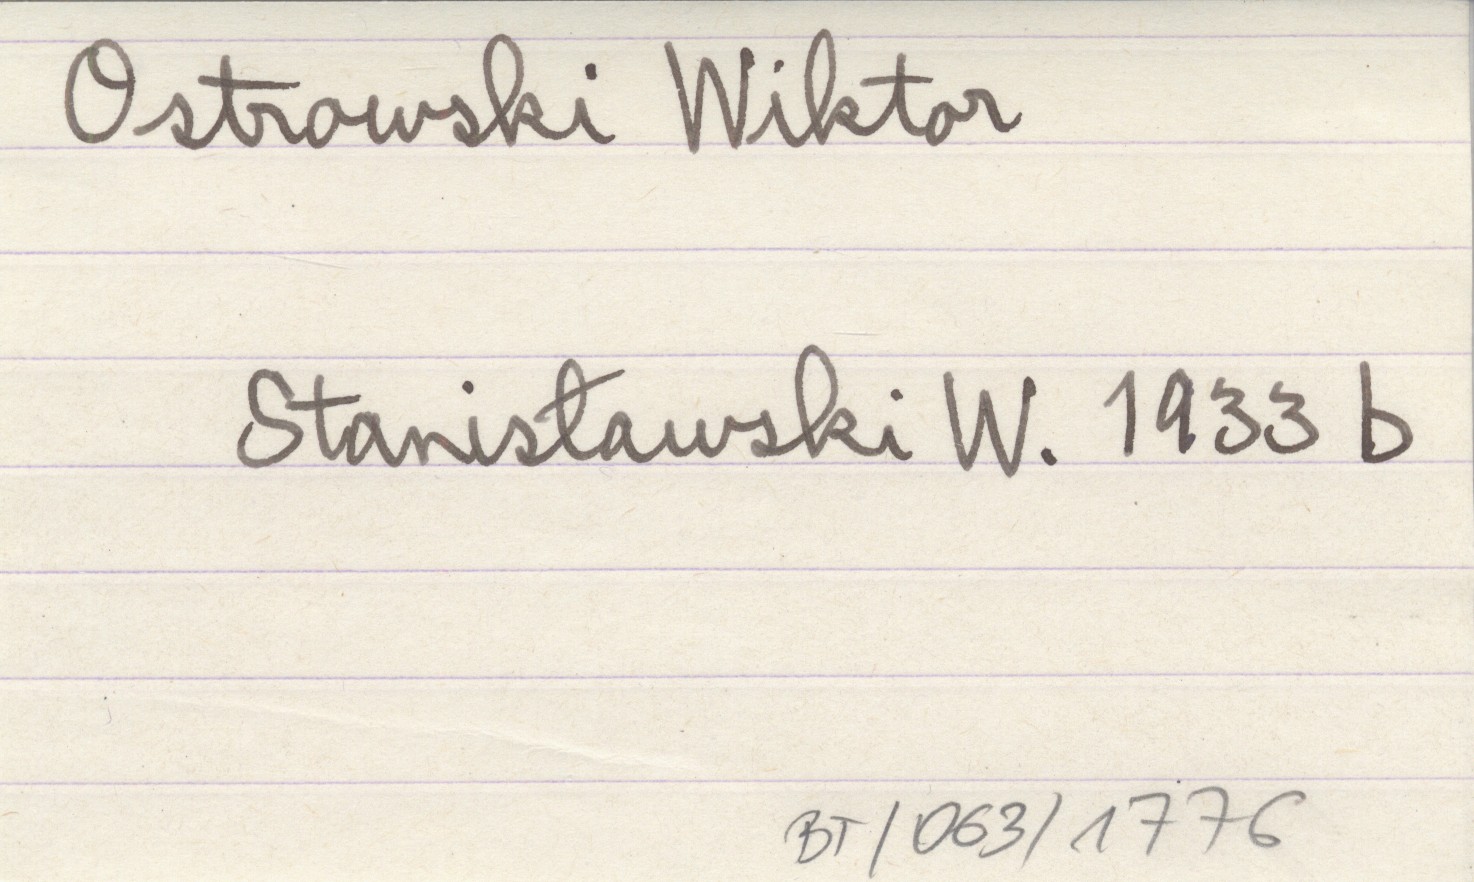 Ostrowski Wiktor
Stanisławski W. 1933 b
BT/063/1776